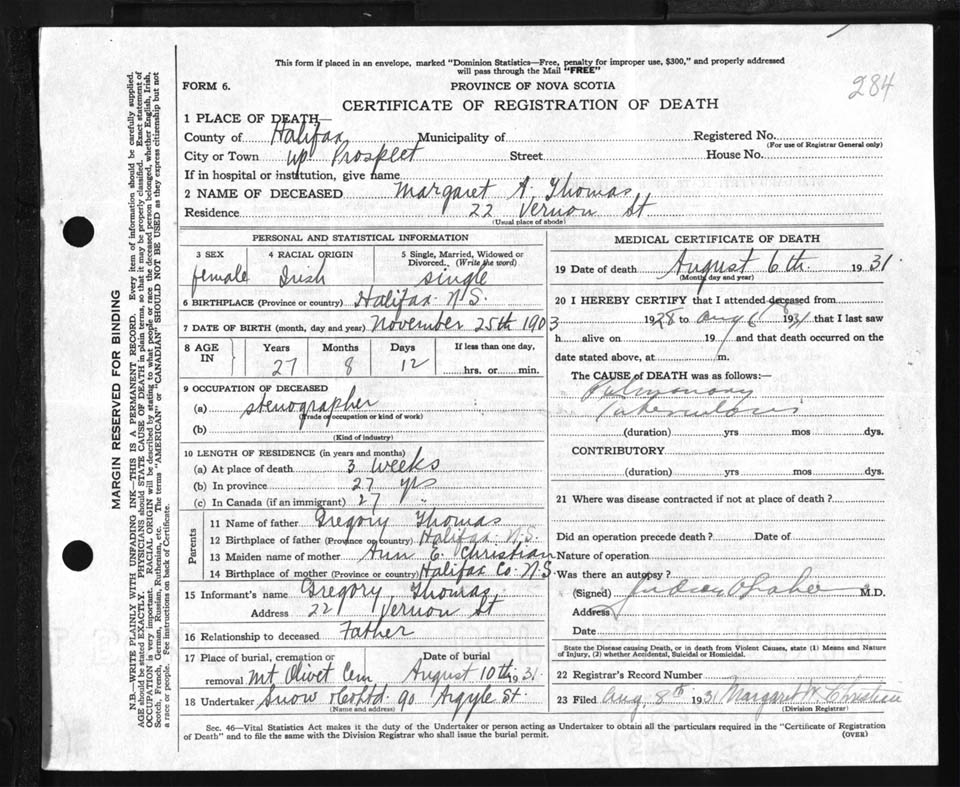 This form if placed in an envelope, marked "Dominion Statistics—Free, penalty for improper use, $300," and properly addressed
will pass through the Mail "FREE"
284
FORM 6.
PROVINCE OF NOVA SCOTIA
CERTIFICATE OF REGISTRATION OF DEATH
1 PLACE OF DEATH—
County of Halifax Municipality of Registered No.
(For use of Registrar General only)
City or Town up Prospect Street House No.
If in hospital or institution, give name
2 NAME OF DECEASED Margaret A. Thomas
Residence 22 Vernon St
(Usual place of abode)
PERSONAL AND STATISTICAL INFORMATION
3 SEX 4 RACIAL ORIGIN 5 Single, Married, Widowed or
Divorced. (Write the word)
female Irish single
6 BIRTHPLACE (Province or country) Halifax N.S.
7 DATE OF BIRTH (month, day and year) November 25th 1903
8 AGE IN Years Months Days If less than one day,
27 8 12 hrs. or min.
9 OCCUPATION OF DECEASED
(a) stenographer
(Trade or occupation or kind of work)
(b)
(Kind of industry)
10 LENGTH OF RESIDENCE (in years and months)
(a) At place of death 3 weeks
(b) In province 27 yrs
(c) In Canada (if an immigrant) 27 "
Parents
11 Name of father Gregory Thomas
12 Birthplace of father (Province or country) Halifax N.S.
13 Maiden name of mother Ann E. Christian
14 Birthplace of mother (Province or country) Halifax Co. N.S.
15 Informant's name Gregory Thomas
Address 22 Vernon St
16 Relationship to deceased Father
17 Place of burial, cremation or Date of burial
removal Mt Olivet Cem August 10th 1931
18 Undertaker Snow & Co Ltd 90 Argyle St.
(Name and address)
MEDICAL CERTIFICATE OF DEATH
19 Date of death August 6th. 1931
(Month, day and year)
20 I HEREBY CERTIFY that I attended deceased from
1928 to Aug 6 1931 that I last saw
h alive on 19 and that death occurred on the
date stated above, at m.
The CAUSE of DEATH was as follows:—
Pulmonary
Tuberculosis
(duration) yrs mos dys.
CONTRIBUTORY
(duration) yrs mos dys.
21 Where was disease contracted if not at place of death?
Did an operation precede death? Date of
Nature of operation
Was there an autopsy?
(Signed) M.D.
Address
Date
State the Disease causing Death, or in death from Violent Causes, state (1) Means and Nature
of Injury, (2) whether Accidental, Suicidal or Homicidal.
22 Registrar's Record Number
23 Filed Aug. 8th 1931 Margaret Christian
(Division Registrar)
Sec. 46—Vital Statistics Act makes it the duty of the Undertaker or person acting as Undertaker to obtain all the particulars required in the "Certificate of Registration
of Death" and to file the same with the Division Registrar who shall issue the burial permit.
(OVER)
MARGIN RESERVED FOR BINDING
N.B.—WRITE PLAINLY WITH UNFADING INK—THIS IS A PERMANENT RECORD. Every item of information should be carefully supplied.
AGE should be stated EXACTLY. PHYSICIANS should STATE CAUSE OF DEATH in plain terms, so that it may be properly classified. Exact statement of
OCCUPATION is very important. RACIAL ORIGIN will be described by stating to what people or race the deceased person belonged, whether English, Irish,
Scotch, French, German, Russian, Ruthenian, etc. The terms "AMERICAN" or "CANADIAN" SHOULD NOT BE USED as they express citizenship but not
a race or people. See instructions on back of Certificate.